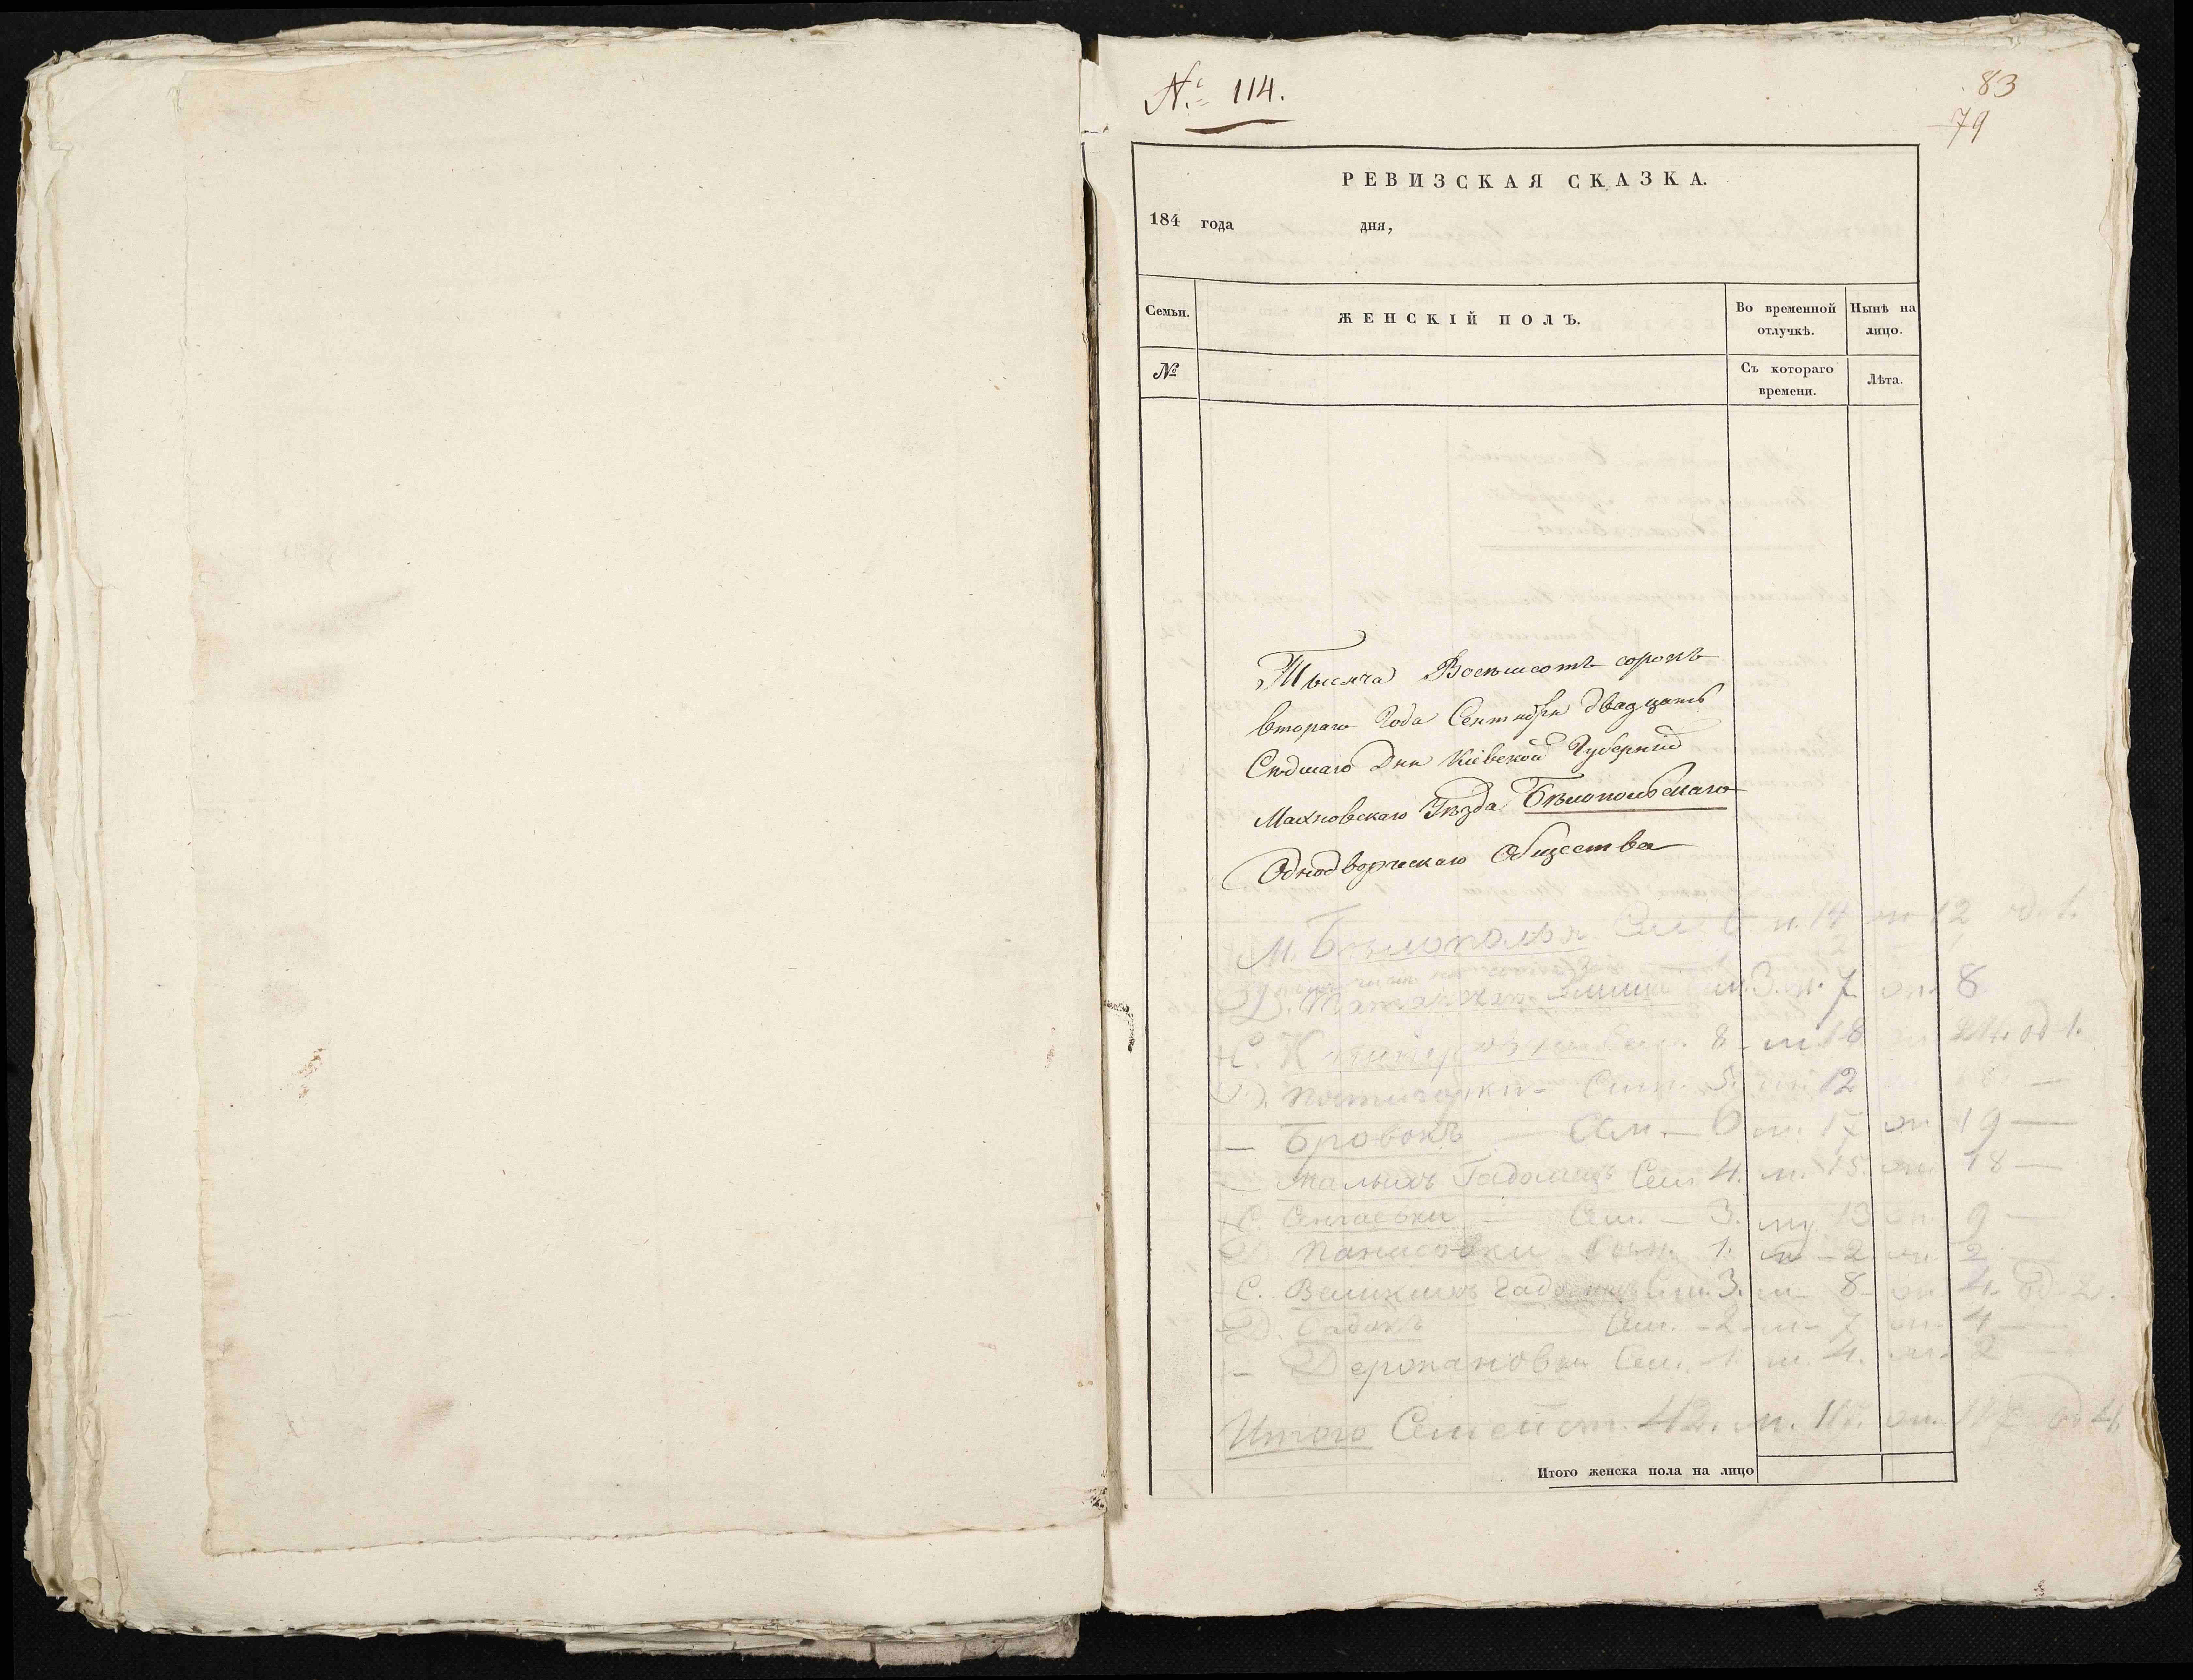 № 114.
83
79
РЕВИЗСКАЯ СКАЗКА.
184 года дня,
Семьи.
ЖЕНСКІЙ ПОЛЪ.
Во временной отлучкѣ.
Нынѣ на лицо.
№
Съ котораго времени.
Лѣта.
Тысяча Восемсотъ сорокъ
втораго Года Сентября двадцать
Седмаго Дня Кіевской Губерніи
Махновскаго Уѣзда Бѣлопольскаго
Однодворческаго Общества
М. Бѣлополья Сем. 6 м. 14 ж 12 од. 1.
Д. 3. м. 7 ж. 8
С. Сем. 8 м. 18 од 1.
Д. Пятигорки Сем. 5. м. 12
— Бровокъ — Сем. — 6 м. 17 ж 19 —
— Малыхъ Гадомец Сем. 4. м. 15. ж. 18 —
С. — Сем. — 3. му 13 ж 9 —
Д. Панасовки Сем. 1. м — 2 ж 2
С. Великихъ Гадомец Сем. 3. м — 8 — ж 4. од 2.
Д. Садокъ Сем. — 2 — м — 7 ж 4 —
— Держановки Сем. 1 м. 4. ж. 2
Итого Семейст. 42. м. ж. од 4.
Итого женска пола на лицо